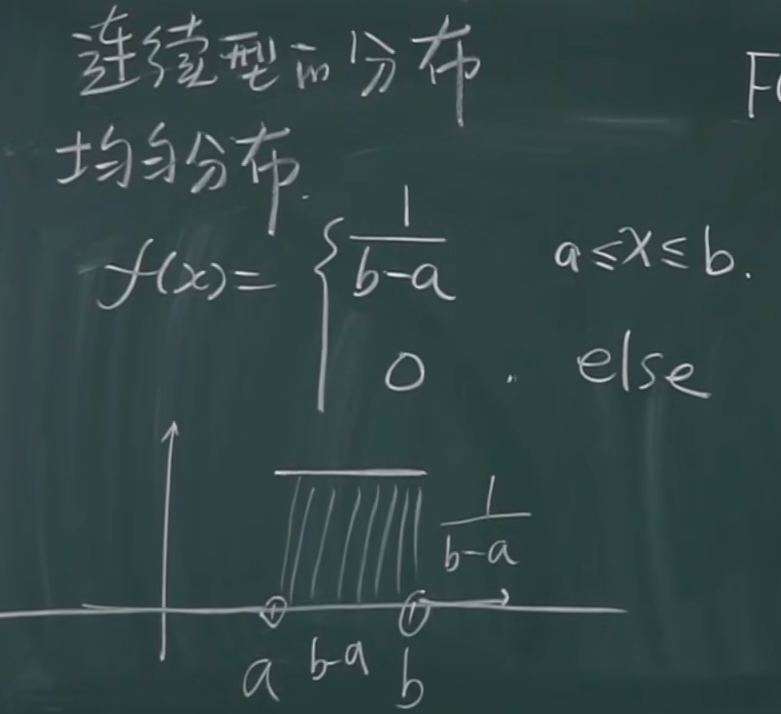 连续型的分布
F(
均匀分布.
f(x)= { 1/(b-a) a≤x≤b.
0 . else
1/(b-a)
a b-a b